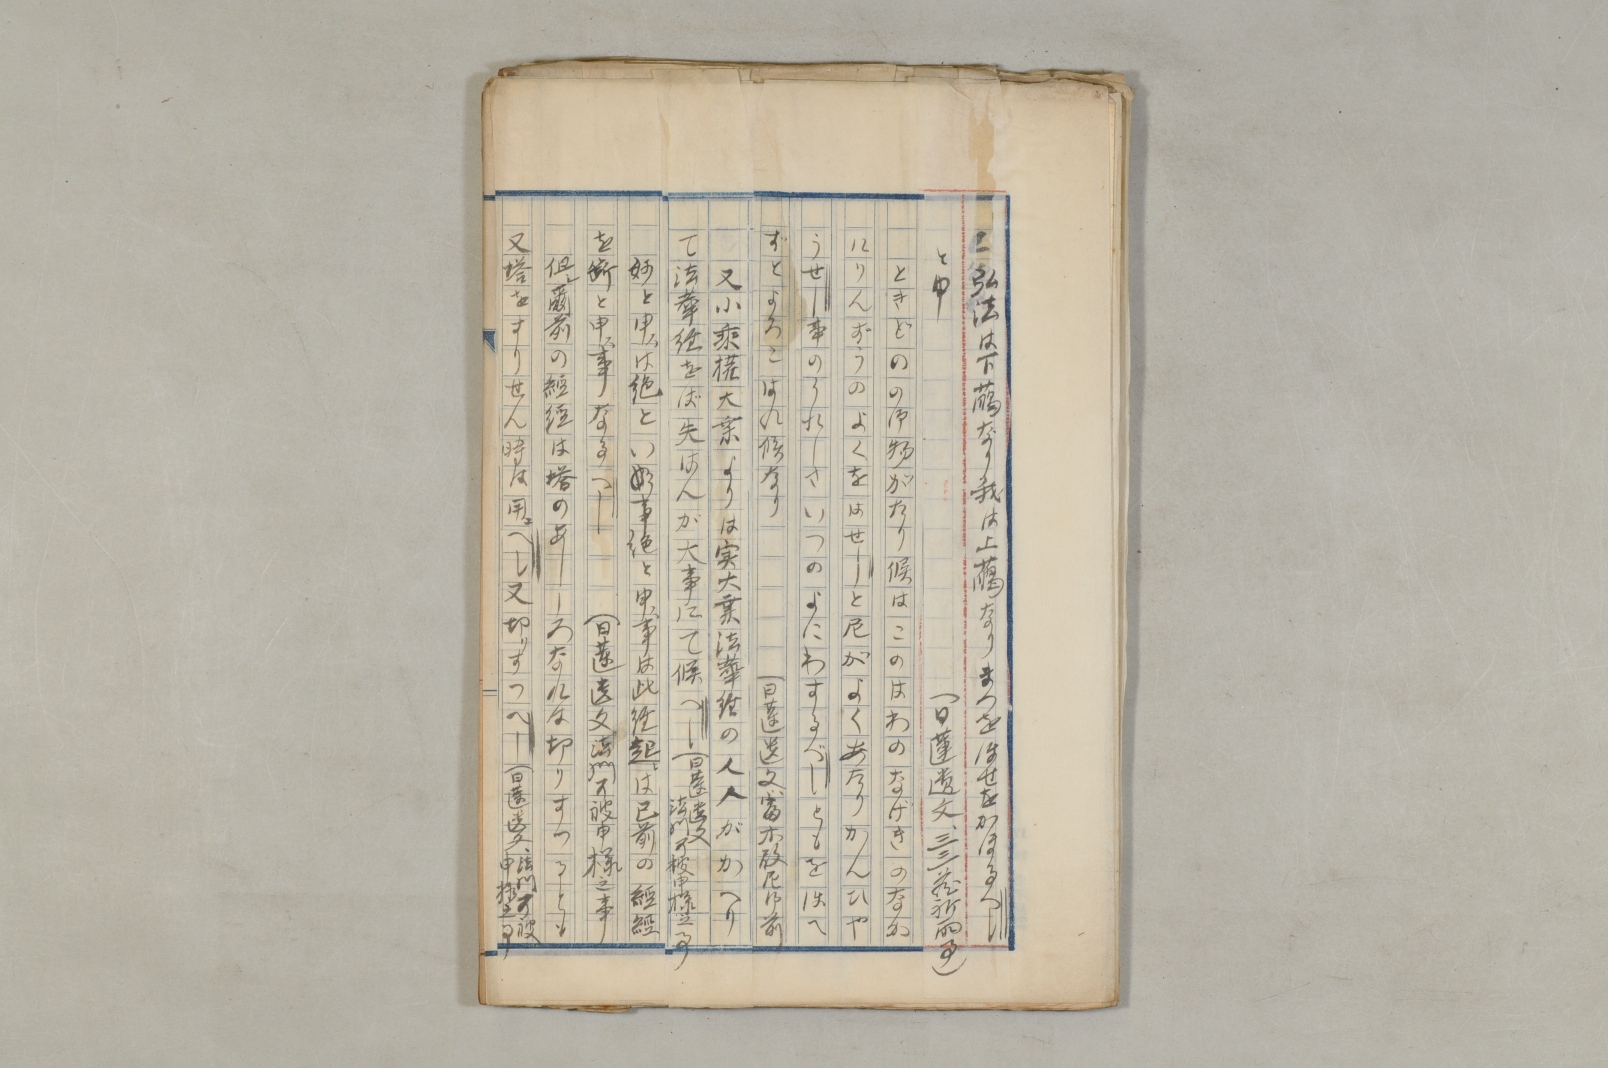 弘法は下﨟なり我は上﨟なりまつをほせをかほるべし
と申
(日蓮遺文、三三蔵祈雨事)
ときどのの御物がたり候はこのはわのなげきのなか
にりんずうのよくをはせしと尼がよくあたりかんひや
うせし事のうれしさいつのよにわするべしともをほへ
ずとよろこはれ候なり
(日蓮遺文、富木殿尼御前
又小乗権大乗よりは実大乗法華経の人人がかへり
て法華経をば失はんが大事にて候べし
(日蓮遺文法門可被申様之事
妙と申は絶といふ事絶と申事は此経起は已前の経経
を断と申事なるべし
(日蓮遺文法門可被申様之事
但爾前の経経は塔のあししろなれは切りすつるとも
又塔をすりせん時は用べし又切りすつべし
(日蓮遺文、法門可被申様之事